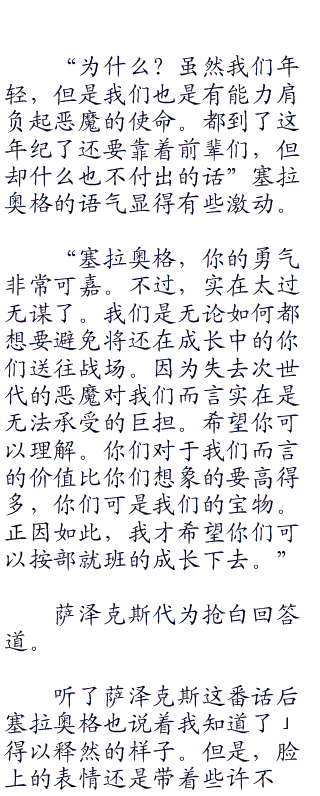 “为什么？虽然我们年
轻，但是我们也是有能力肩
负起恶魔的使命。都到了这
年纪了还要靠着前辈们，但
却什么也不付出的话”塞拉
奥格的语气显得有些激动。
“塞拉奥格，你的勇气
非常可嘉。不过，实在太过
无谋了。我们是无论如何都
想要避免将还在成长中的你
们送往战场。因为失去次世
代的恶魔对我们而言实在是
无法承受的巨担。希望你可
以理解。你们对于我们而言
的价值比你们想象的要高得
多，你们可是我们的宝物。
正因如此，我才希望你们可
以按部就班的成长下去。”
萨泽克斯代为抢白回答
道。
听了萨泽克斯这番话后
塞拉奥格也说着我知道了」
得以释然的样子。但是，脸
上的表情还是带着些许不